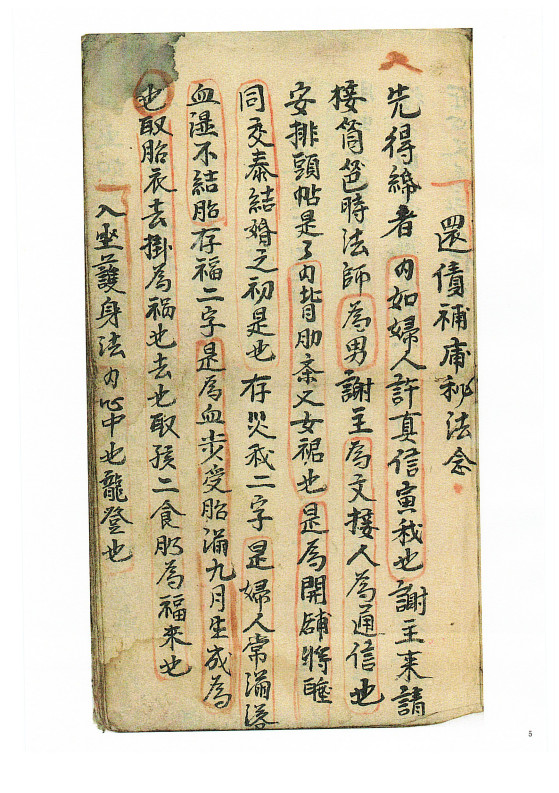 還債補庫秘法念
先得綿者內如婦人許真信寅我也謝主來請
接筒筶時法師為男謝主為文接人為通信也
安排頭帖是了內背肋条又女裙也是為開舖將睡
同交泰結婚之初是也存災我二字是婦人常漏落
血湿不結胎存福二字是為血步受胎滿九月生成為
也取胎衣去掛為禍也去也取孩二食肕為福來也
入坐護身法內心中也龍登也
5